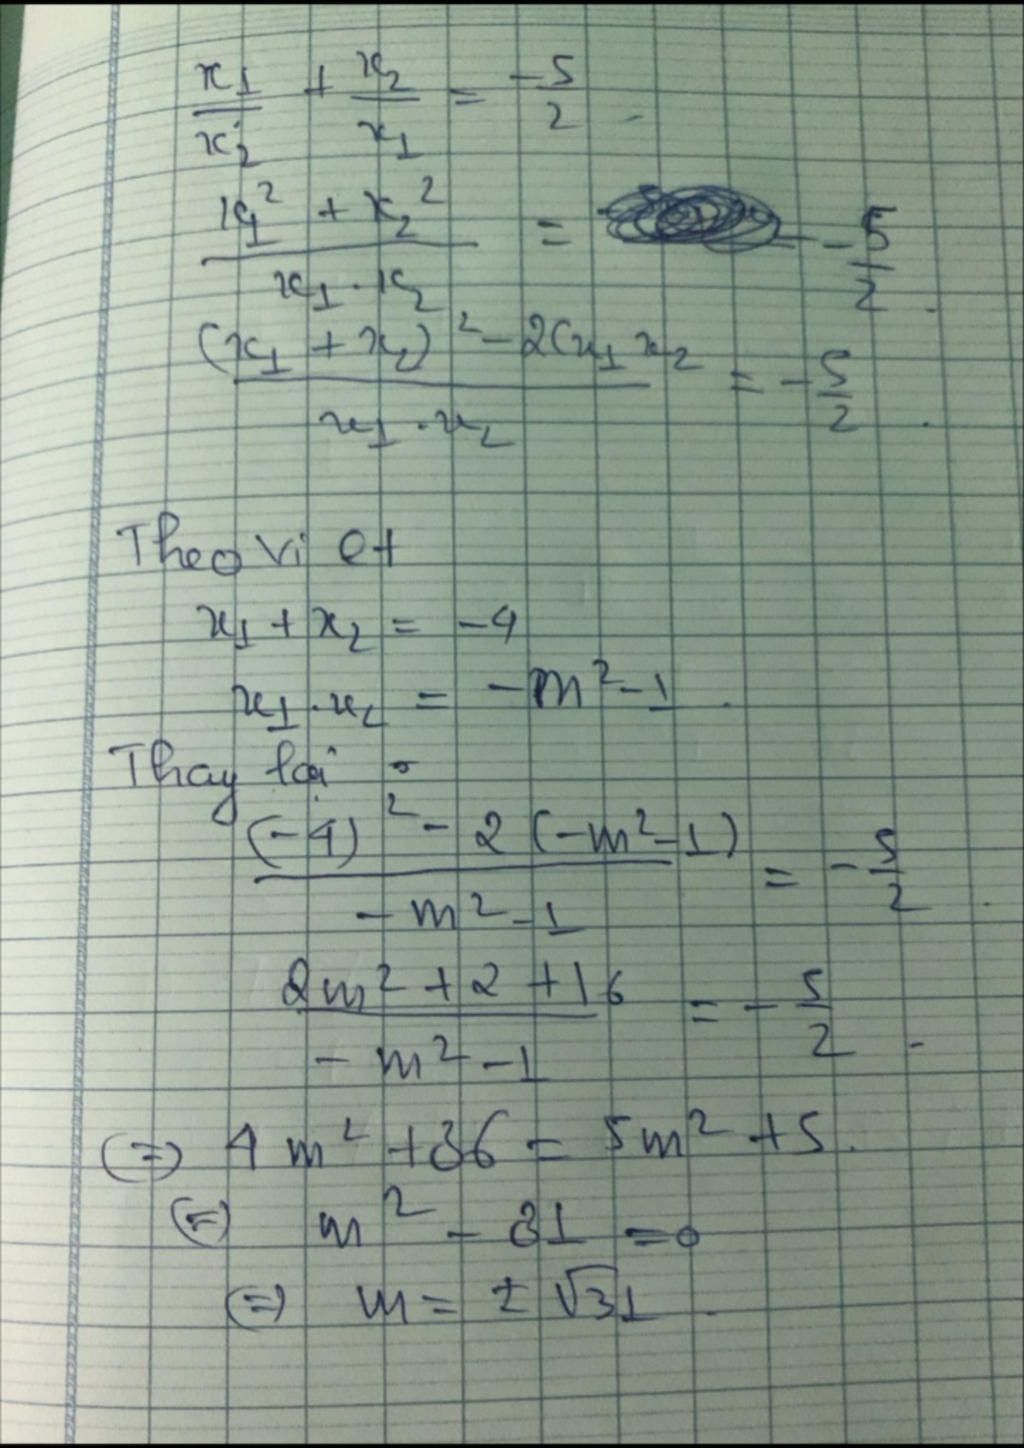 x₁/x₂ + x₂/x₁ = -5/2.
(x₁² + x₂²)/(x₁ . x₂) = -5/2.
((x₁ + x₂)² - 2(x₁x₂)/(x₁ . x₂) = -5/2.
Theo vi et
x₁ + x₂ = -4
x₁ . x₂ = -m² - 1.
Thay lại :
((-4)² - 2(-m² - 1))/(-m² - 1) = -5/2.
(2m² + 2 + 16)/(-m² - 1) = -5/2.
(=) 4m² + 36 = 5m² + 5.
(=) m² - 31 = 0
(=) m = ± √31.